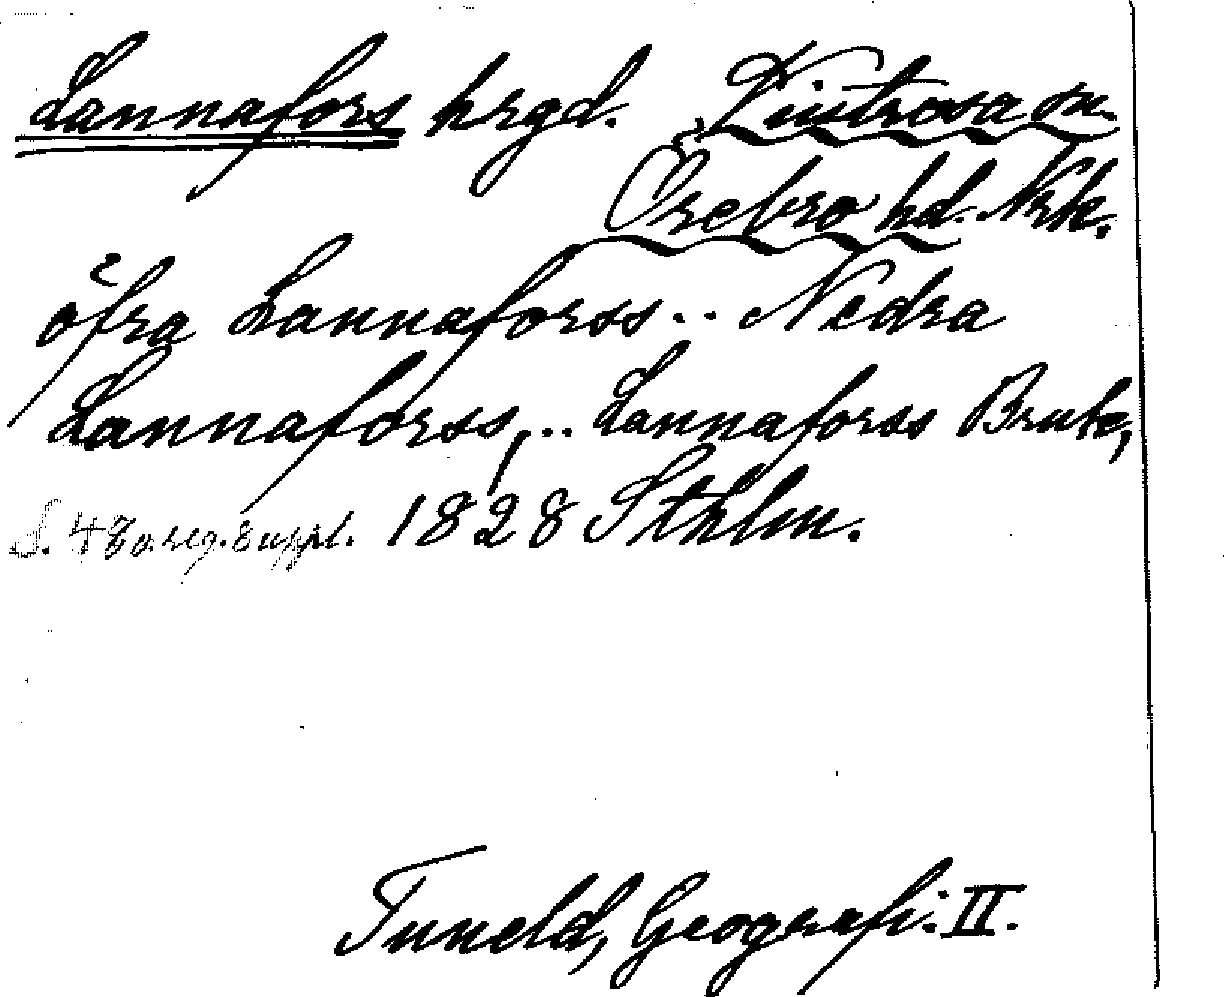 Lannafors hrgd. Kvistrosa sn.
Örebro hd. Nrk.
öfra Lannaforss .. Nedra
Lannaforss, .. Lannaforss Bruk,
S. 48 o. reg. suppl. 1828 Sthlm.
Tuneld, Geografi. II.